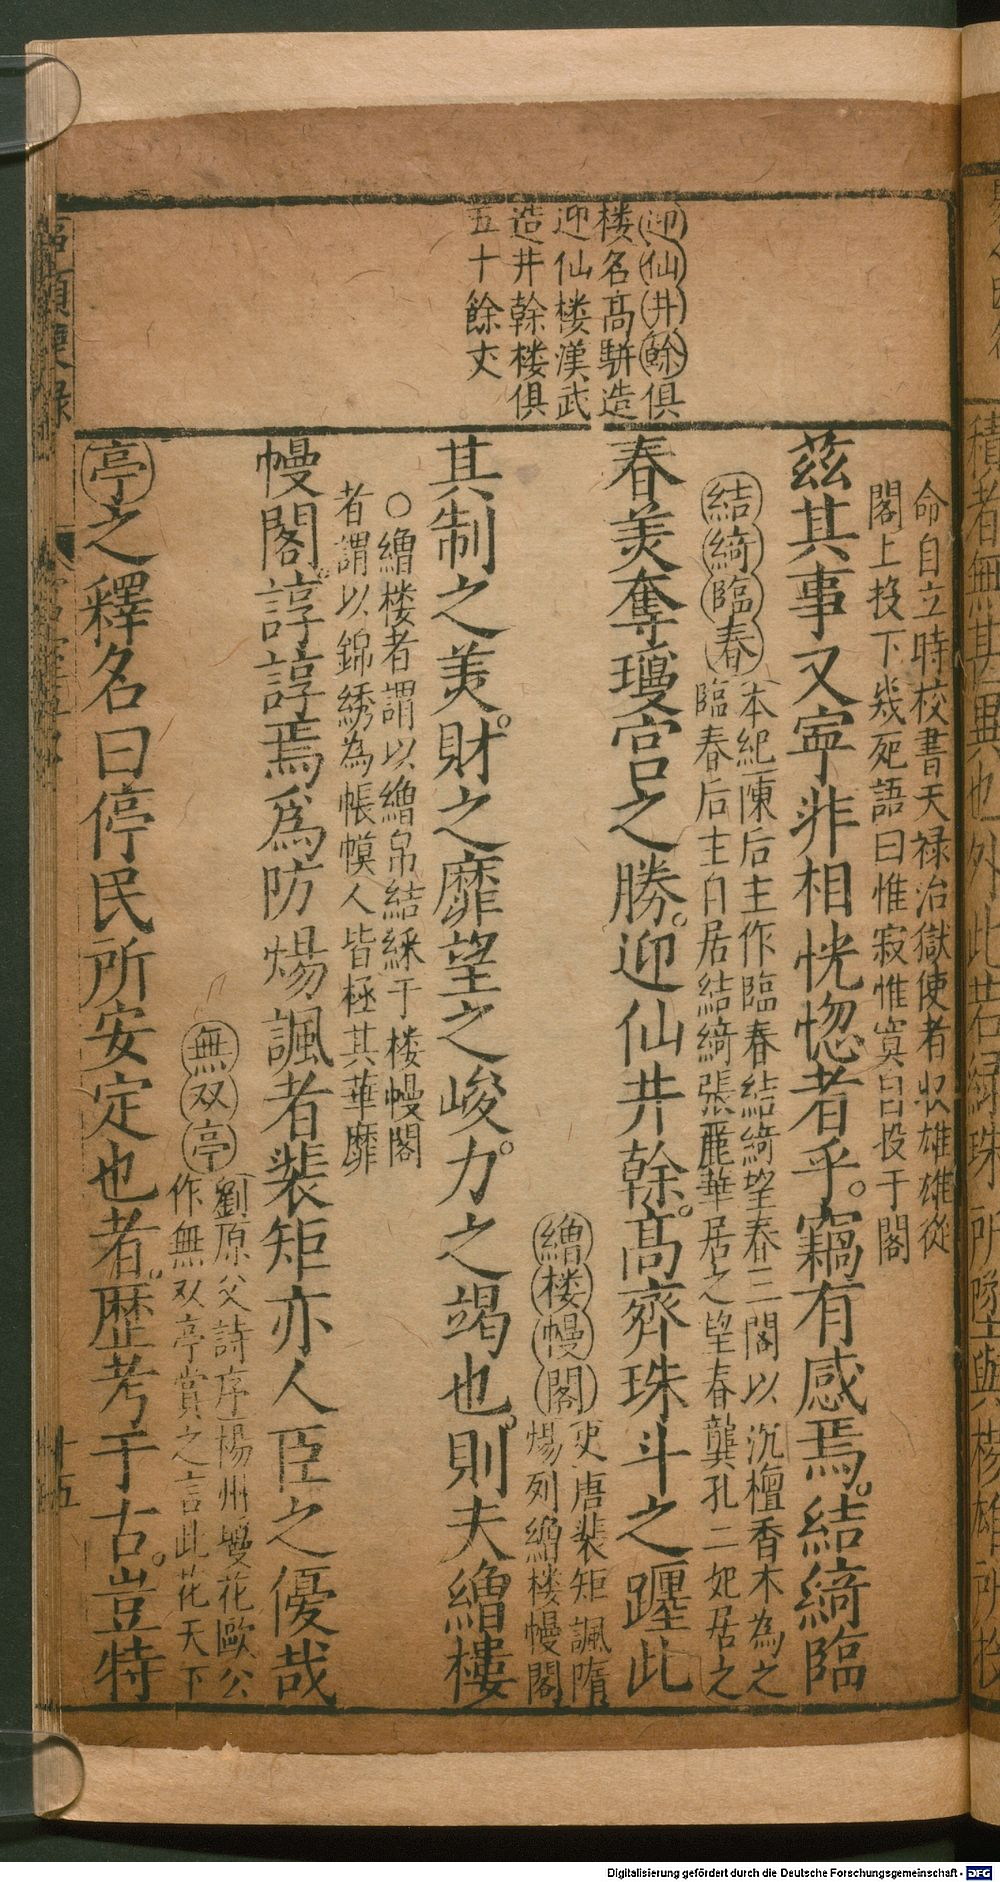 迎仙井幹俱
楼名高駢造
迎仙楼漢武
造井幹楼俱
五十餘丈
命自立時校書天禄治獄使者收雄雄從
閣上投下幾死語曰惟寂惟寞自投于閣
茲其事又寧非相恍惚者乎竊有感焉結綺臨
結綺臨春本紀陳后主作臨春結綺望春三閣以沉檀香木為之
臨春后主自居結綺張麗華居之望春龔孔二妃居之
春美奪瓊宮之勝迎仙井幹高齊珠斗之躔此
繒楼幔閣史唐裴矩諷隋
煬列繒楼幔閣
其制之美財之靡望之峻力之竭也則夫繒樓
○繒楼者謂以繒帛結綵于楼幔閣
者謂以錦綉為帳幙人皆極其華靡
幔閣諄諄焉爲防煬諷者裴矩亦人臣之優哉
無双亭劉原父詩序楊州瓊花歐公
作無双亭賞之言此花天下
亭之釋名曰停民所安定也者歷考于古豈特
十五
積者無其異也外此若緑珠所墜與楊雄所投
Digitalisierung gefördert durch die Deutsche Forschungsgemeinschaft - DFG